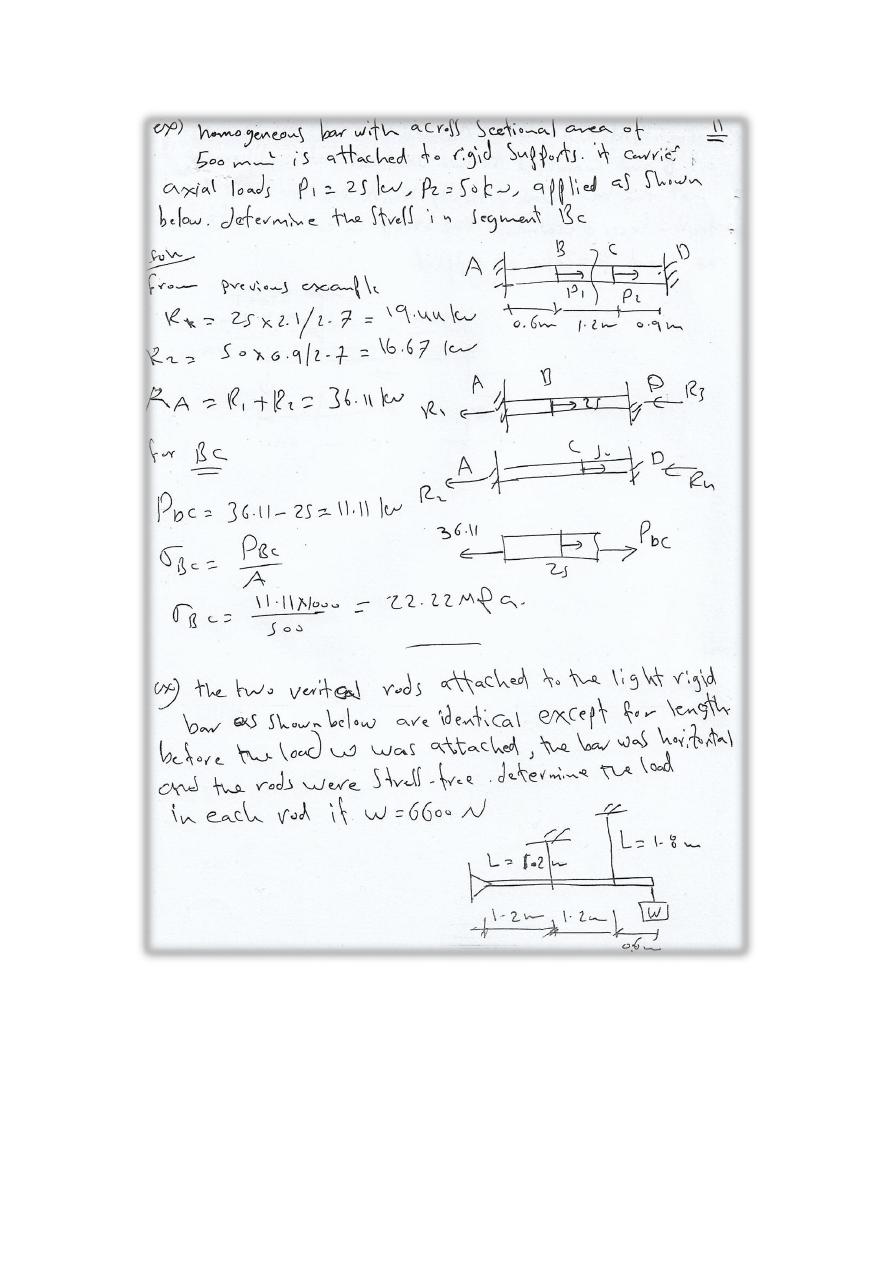 ex) homogeneous bar with across Scetional area of
11
500 mm² is attached to rigid Supports. it carries
axial loads P1 = 25 kN, P2 = 50 kN, applied as Shown
below. determine the Stress in segment BC
soln
A B C D
from previous example
P1 P2
0.6m 1.2m 0.9m
R1 = 25 x 2.1/2.7 = 19.44 kN
R2 = 50 x 0.9/2.7 = 16.67 kN
A B D R3
R1 25
RA = R1 + R2 = 36.11 kN
for BC
A C 50 D
R2 R4
PBC = 36.11 - 25 = 11.11 kN
36.11 PBC
25
σBC = PBC / A
σBC = 11.11x1000 / 500 = 22.22 MPa.
ex) the two vertical rods attached to the light rigid
bar as Shown below are identical except for length
before the load w was attached, the bar was horizontal
and the rods were Stress-free. determine the load
in each rod if w = 6600 N
L = 1.8 m
L = 1.2 m
W
1.2m 1.2m
0.6m